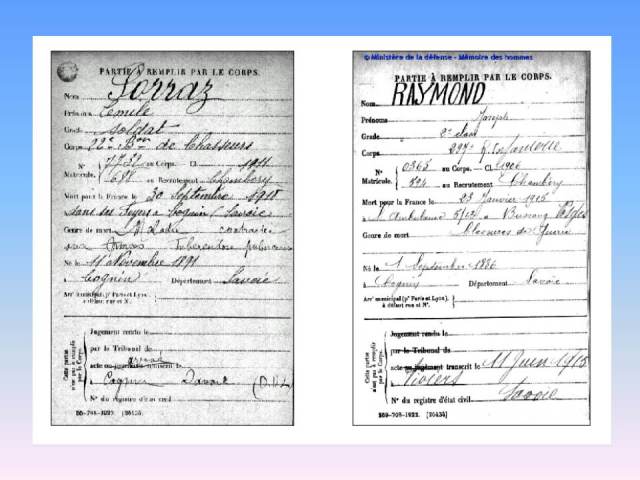 PARTIE À REMPLIR PAR LE CORPS.
Nom Lorraz
Prénoms Camile
Grade soldat
Corps 22e Bon de Chasseurs
N° 7732 au Corps. Cl. 1911
Matricule. 678 au Recrutement Chambéry
Mort pour la France le 30 Septembre 1918
dans ses foyers à Cognin (Savoie)
Genre de mort Maladie contractée
aux Armées Tuberculose pulmonaire
Né le 11 Novembre 1891
à Cognin Département Savoie
Arrt municipal (pr Paris et Lyon),
à défaut rue et N°.
Cette partie n'est pas à remplir par le Corps.
Jugement rendu le
par le Tribunal de
acte ou jugement transcrit le
à Cognin Savoie
N° du registre d'état civil
[26434.]
© Ministère de la défense - Mémoire des hommes
PARTIE À REMPLIR PAR LE CORPS.
Nom RAYMOND
Prénoms Joseph
Grade 2e classe
Corps 297e
N° 0363 au Corps. — Cl. 1906
Matricule. 824 au Recrutement Chambéry
Mort pour la France le 23 Janvier 1915
à l'Ambulance 5/12 à Bussang Vosges
Genre de mort Blessures de Guerre
Né le 1 Septembre 1886
à Cognin Département Savoie
Arrt municipal (pr Paris et Lyon),
à défaut rue et N°.
Cette partie n'est pas à remplir par le Corps.
Jugement rendu le
par le Tribunal de
acte ou jugement transcrit le 11 Juin 1915
à Viviers
N° du registre d'état civil Savoie
[26434]